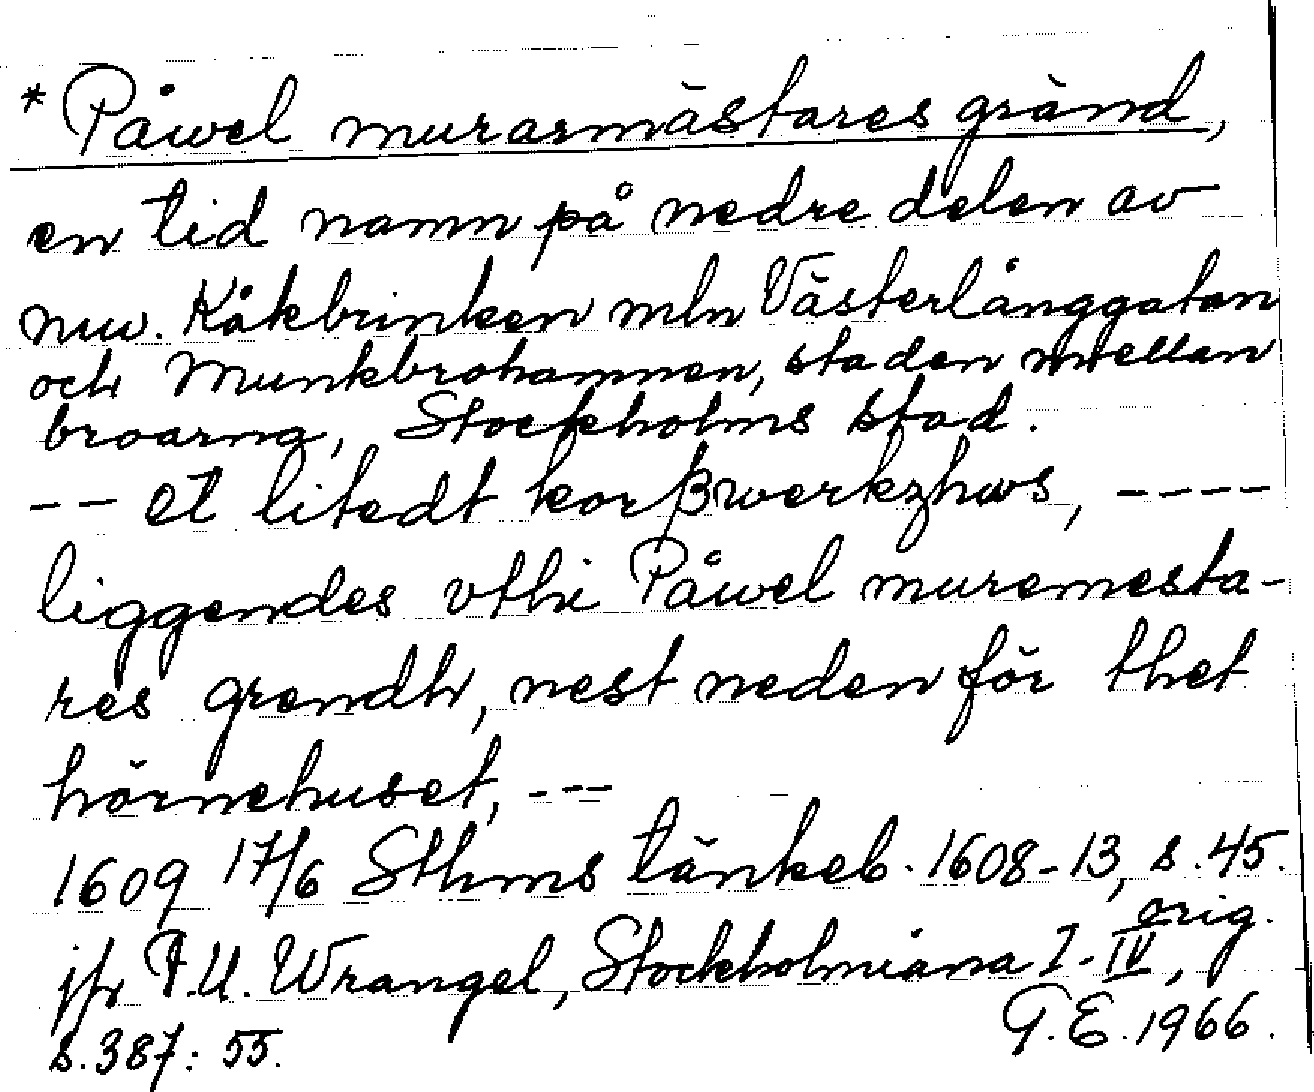 * Påwel murarmästares gränd,
en tid namn på nedre delen av
nuv. Kåkbrinken mln Västerlånggatan
och Munkbrohamnen, staden mellan
broarna, Stockholms stad.
-- et litedt korßwerkzhws, ----
liggendes vthi Påwel muremesta-
res grendh, nest neden för thet
hörnehuset, ---
1609 17/6 Sthms tänkeb. 1608-13, s. 45.
orig.
jfr F.U. Wrangel, Stockholmiana I-IV,
s. 387: 55.
G.E. 1966.